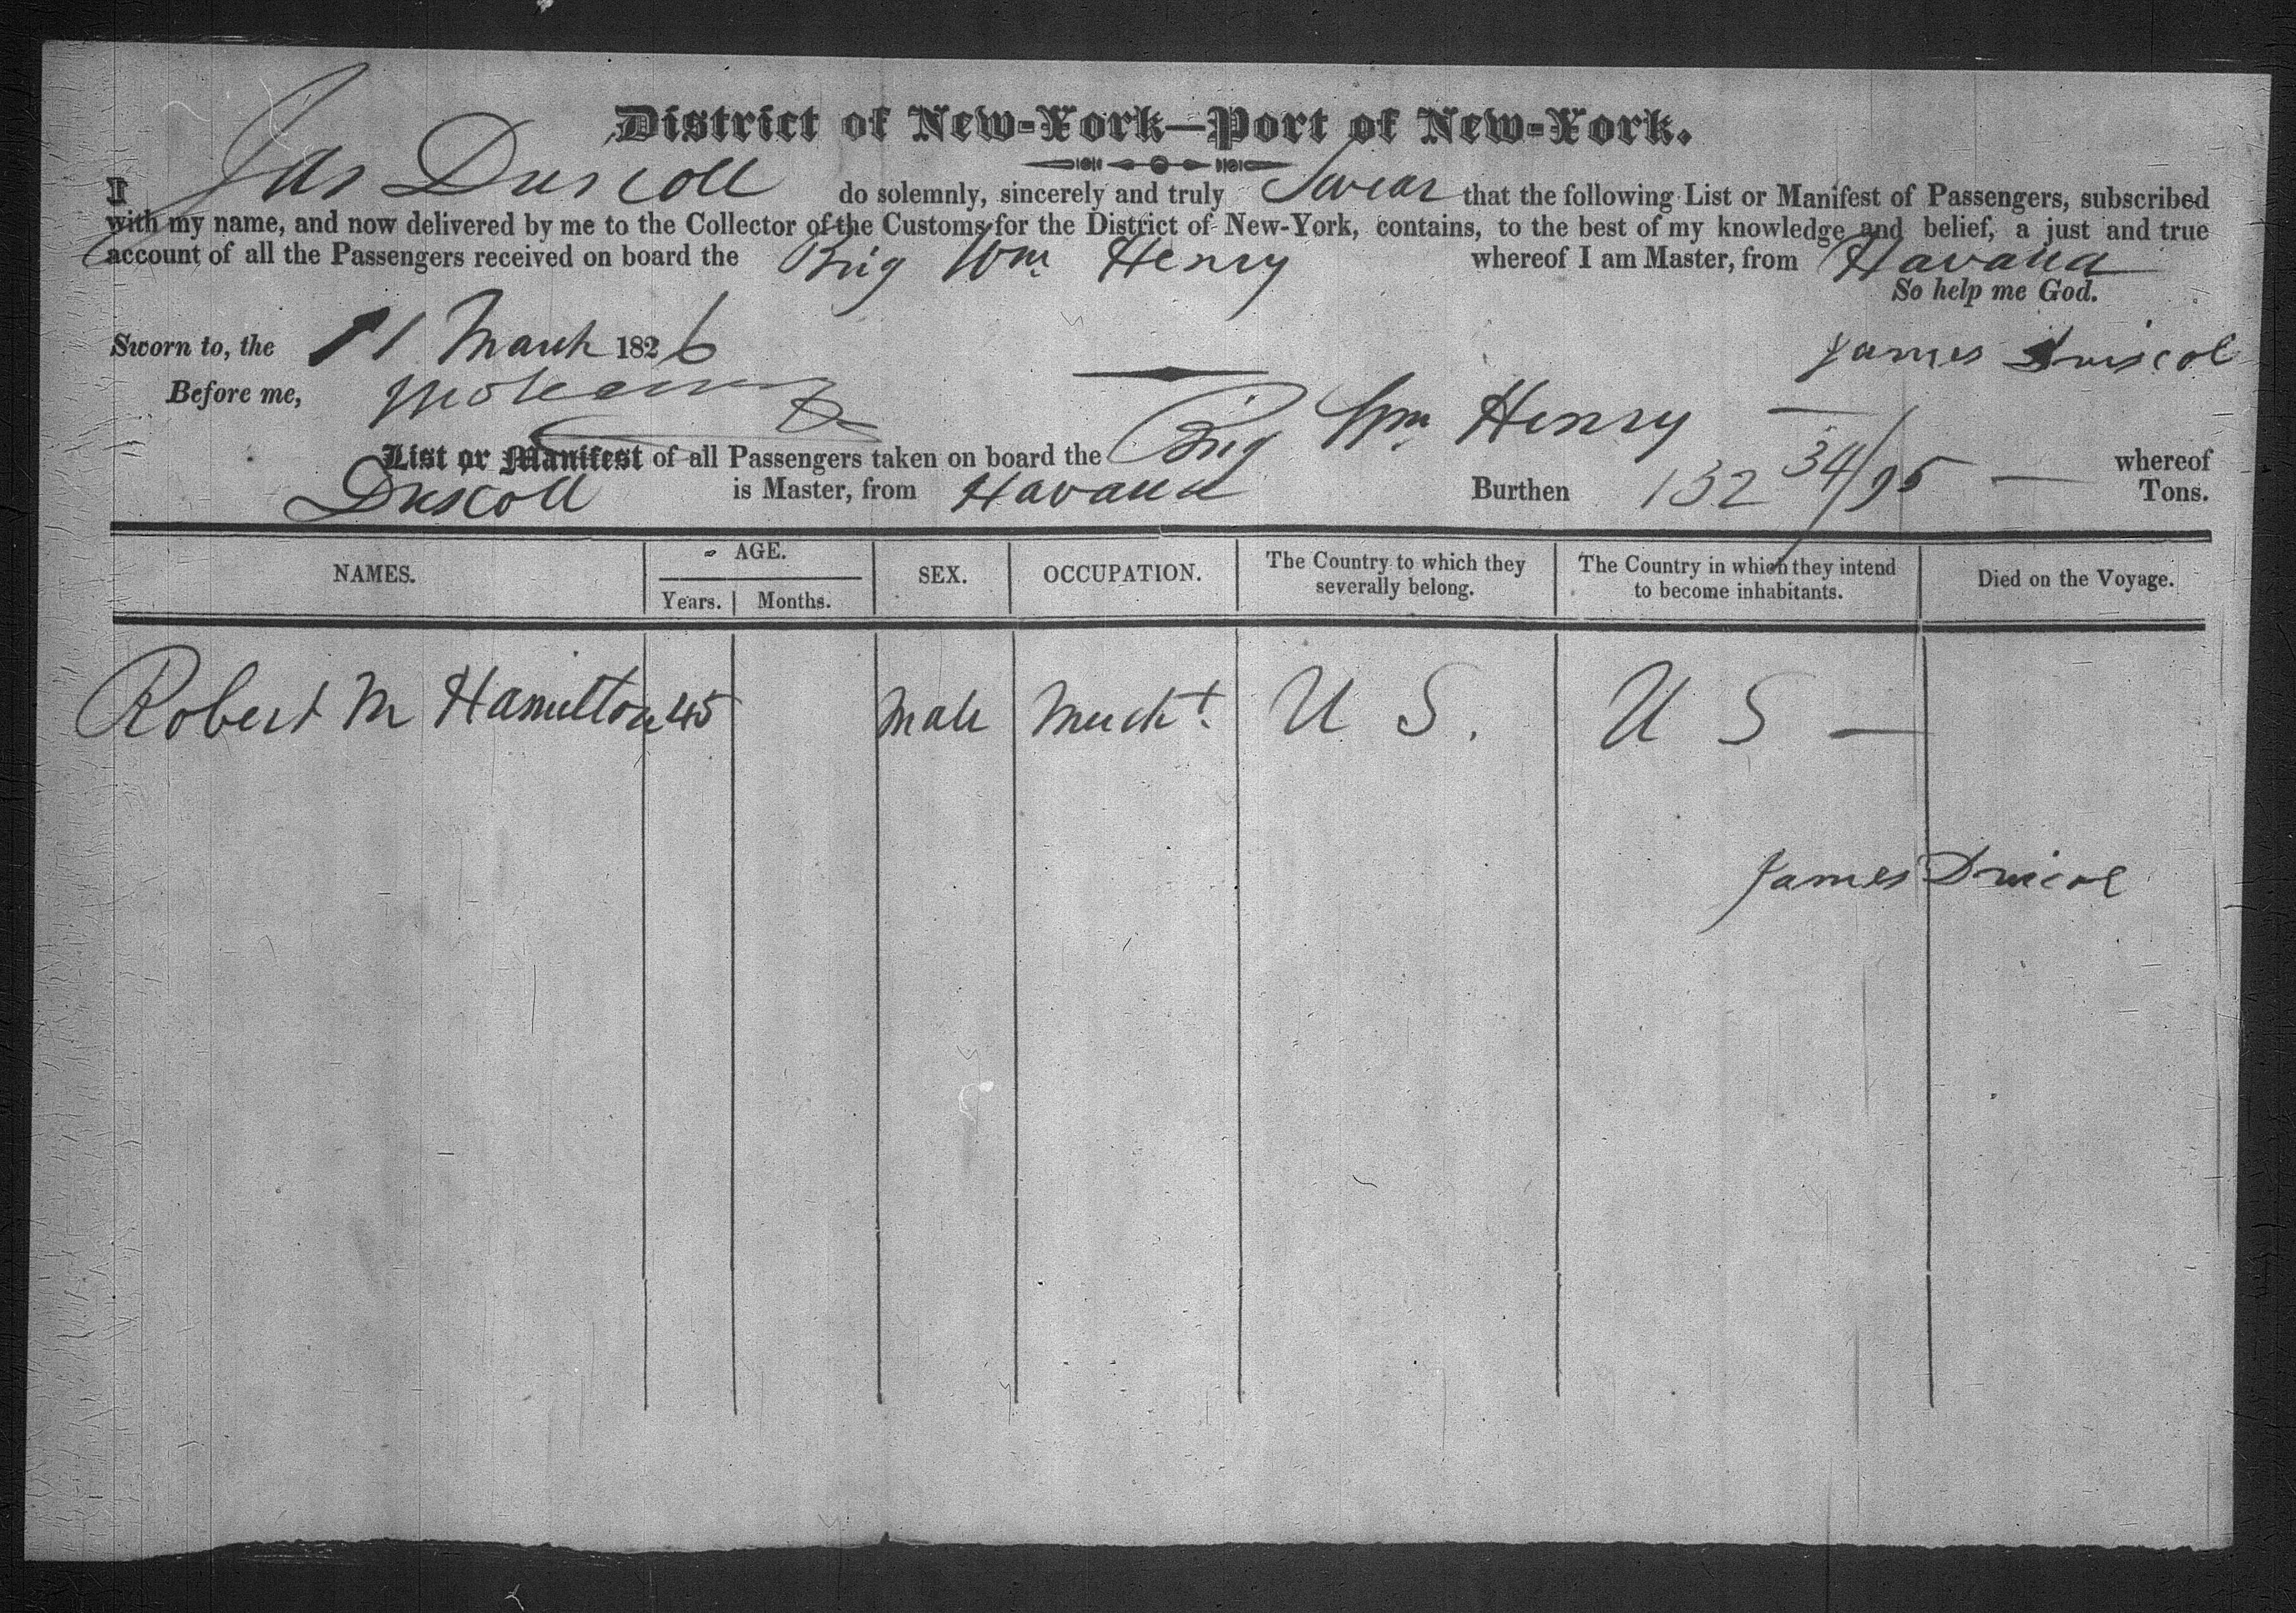 District of New-York—Port of New-York.
I Jas Driscoll do solemnly, sincerely and truly Swear that the following List or Manifest of Passengers, subscribed
with my name, and now delivered by me to the Collector of the Customs for the District of New-York, contains, to the best of my knowledge and belief, a just and true
account of all the Passengers received on board the Brig Wm Henry whereof I am Master, from Havana
So help me God.
Sworn to, the 11 March 1826 James Driscol
Before me,
List or Manifest of all Passengers taken on board the Brig Wm Henry — whereof
Driscoll is Master, from Havana Burthen 132 34/95 — Tons.
NAMES. AGE. SEX. OCCUPATION. The Country to which they severally belong. The Country in which they intend to become inhabitants. Died on the Voyage.
Years. Months.
Robert M Hamilton 45 Male Mercht. U S. U S —
James Driscol